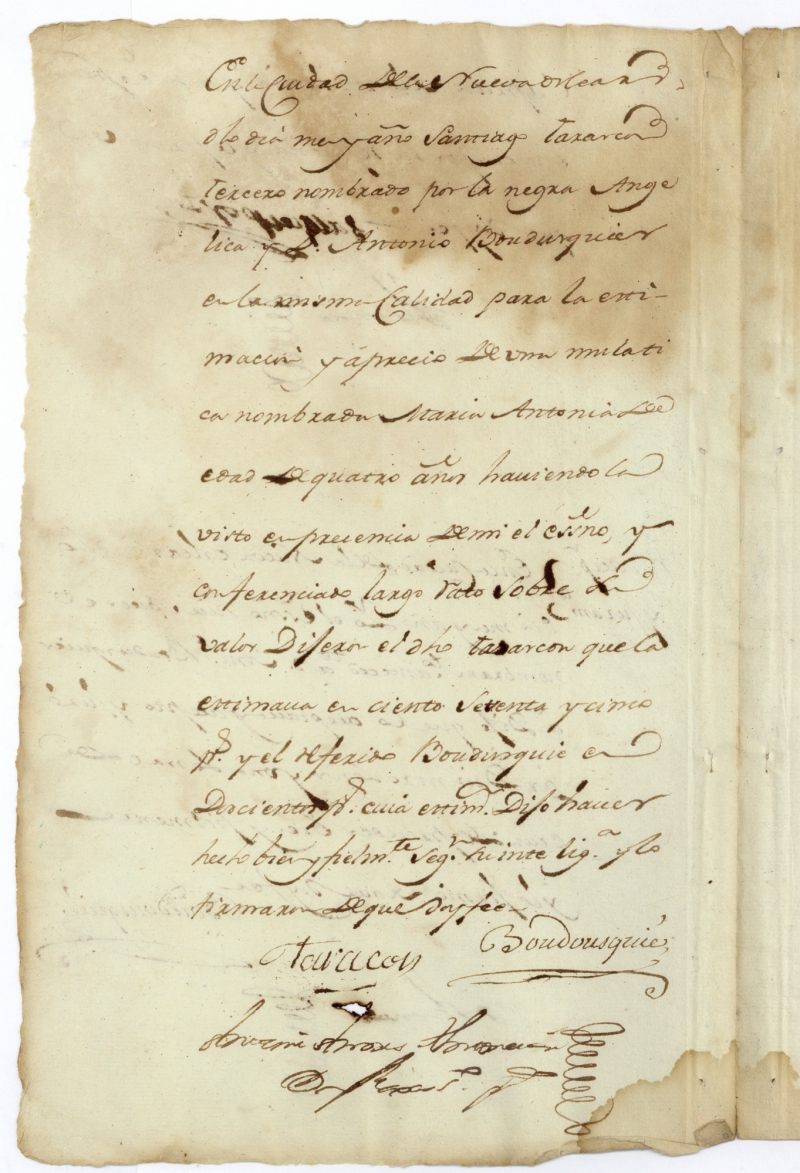 En la Ciudad de la Nueva Orleans
dho dia mes y año Santiago tarascon
tercero nombrado por la negra Ange
lica y Dn. Antonio Boudusquier
en la misma Calidad para la esti-
macion y aprecio de una mulati
ca nombrada Maria Antonia de
edad de quatro años haviendola
visto en precencia de mi el essno, y
conferenciado largo rato sobre su
valor Dijeron el dho tarascon que la
estimava en ciento setenta y cinco
ps. y el referido Boudusquie en
Docientos ps. cuia estimn. Dijo haver
hecho bien y fielmte. segn. su inteliga. y lo
firmaron de que doy fee
Taracon Boudousquié
Ante mi